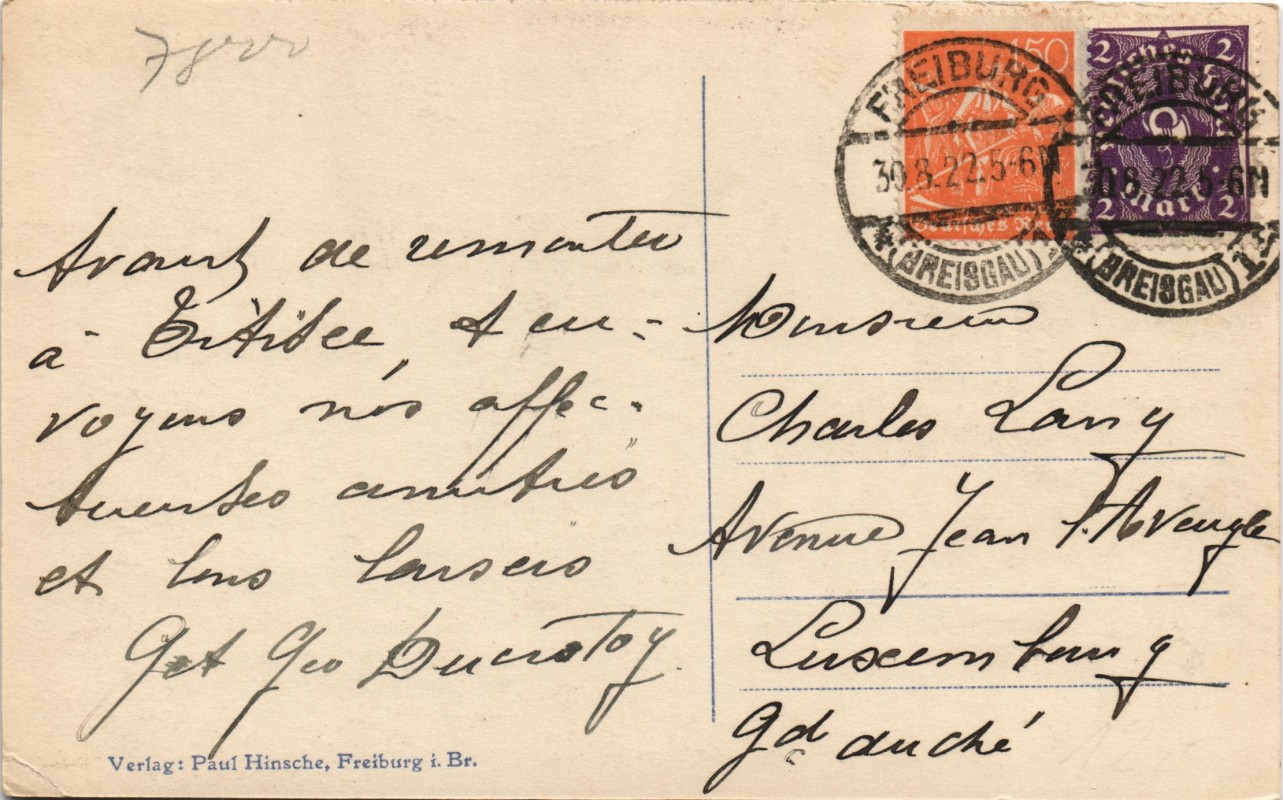 Avant de remonter
à Titisee, t en-
voyons nos affec-
tueuses amitiés
et bons baisers
Get Geo Ducrotoy.
Verlag: Paul Hinsche, Freiburg i. Br.
150
Deutsches Reich
2 2
Deutsches Reich
2
Mark
2 2
FREIBURG
30.8.22.5-6N
(BREISGAU)
FREIBURG
30.8.22.5-6N
(BREISGAU)
Monsieur
Charles Lang
Avenue Jean l'Aveugle
Luxembourg
Gd duché